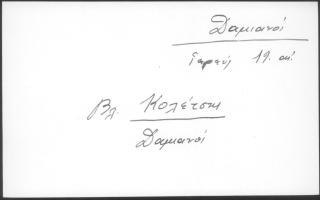 Δαμιανοί
19. αι.
Βλ. Κολέτση
Δαμιανοί